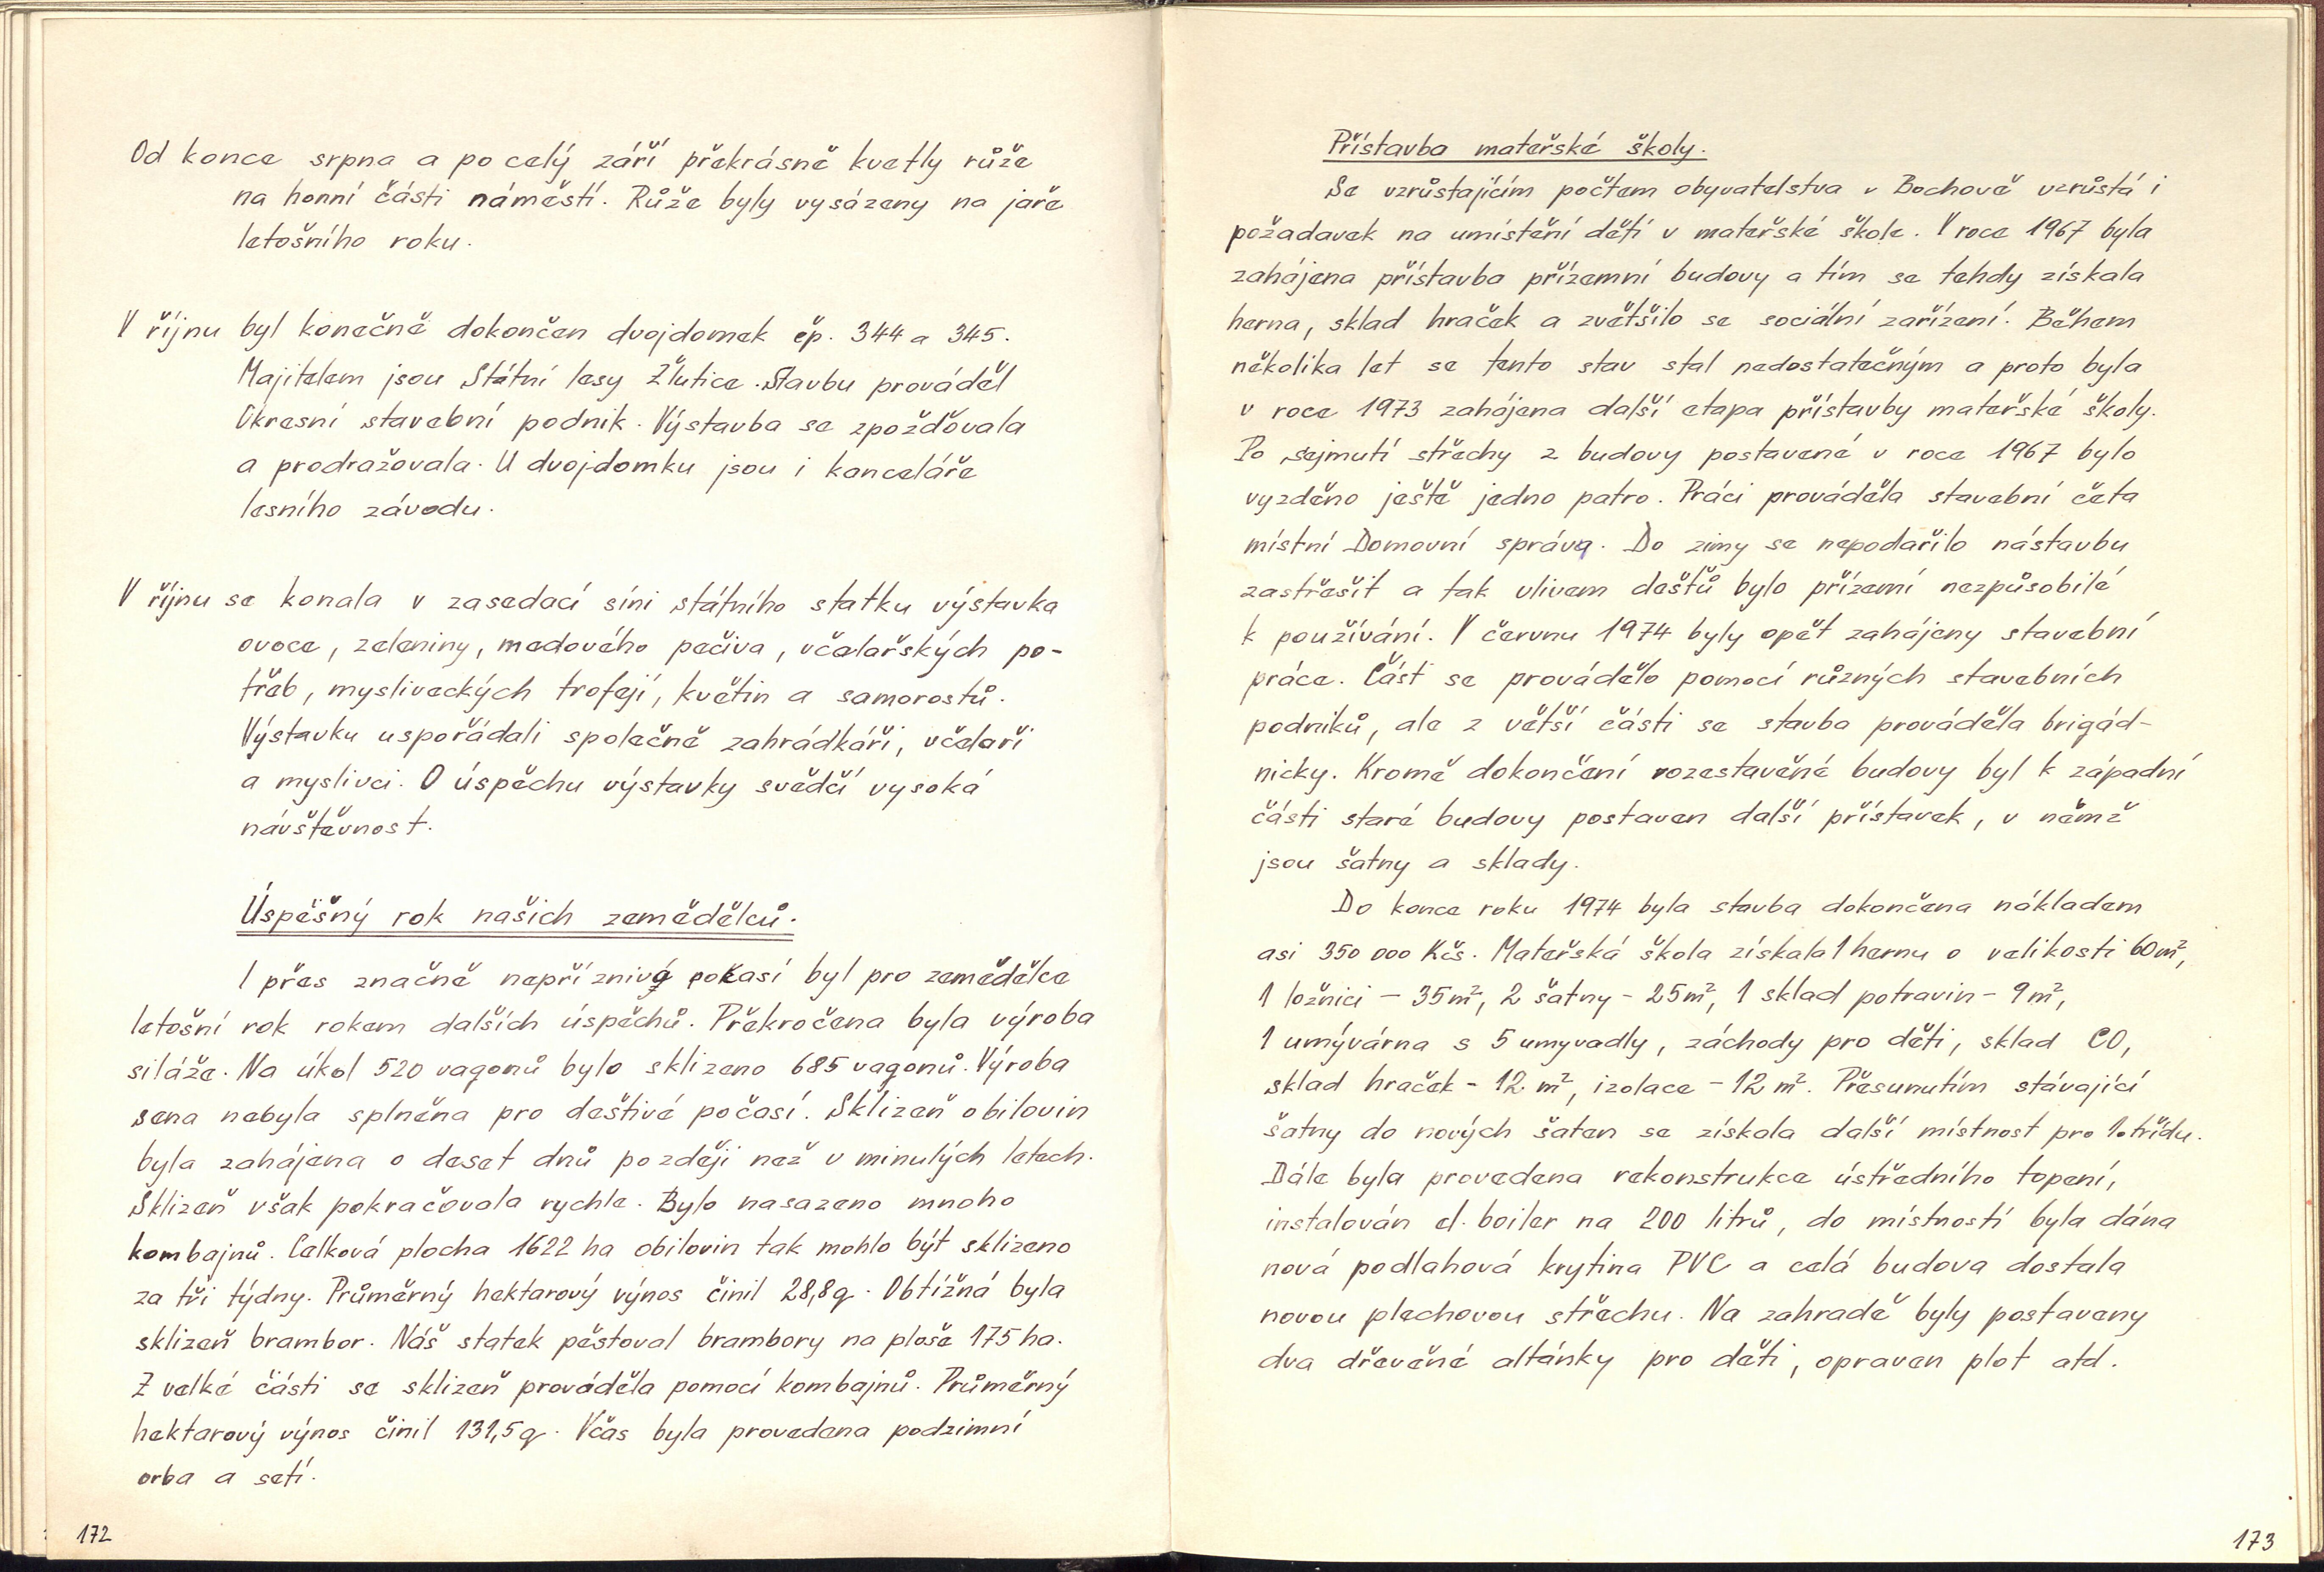 Od konce srpna a po celý září překrásně kvetly růže
na horní části náměstí. Růže byly vysázeny na jaře
letošního roku.
V říjnu byl konečně dokončen dvojdomek čp. 344 a 345.
Majitelem jsou Státní lesy Žlutice. Stavbu prováděl
Okresní stavební podnik. Výstavba se zpožďovala
a prodražovala. U dvojdomku jsou i kanceláře
lesního závodu.
V říjnu se konala v zasedací síni státního statku výstavka
ovoce, zeleniny, medového pečiva, včelařských po-
třeb, mysliveckých trofejí, květin a samorostů.
Výstavku uspořádali společně zahrádkáři, včelaři
a myslivci. O úspěchu výstavky svědčí vysoká
návštěvnost.
Úspěšný rok našich zemědělců.
I přes značně nepříznivé počasí byl pro zemědělce
letošní rok rokem dalších úspěchů. Překročena byla výroba
siláže. Na úkol 520 vagonů bylo sklizeno 685 vagonů. Výroba
sena nebyla splněna pro deštivé počasí. Sklizeň obilovin
byla zahájena o deset dnů později než v minulých letech.
Sklizeň však pokračovala rychle. Bylo nasazeno mnoho
kombajnů. Celková plocha 1622 ha obilovin tak mohlo být sklizeno
za tři týdny. Průměrný hektarový výnos činil 28,8q. Obtížná byla
sklizeň brambor. Náš statek pěstoval brambory na ploše 175 ha.
Z velké části se sklizeň prováděla pomocí kombajnů. Průměrný
hektarový výnos činil 131,5q. Včas byla provedena podzimní
orba a setí.
172
Přístavba mateřské školy.
Se vzrůstajícím počtem obyvatelstva v Bochově vzrůstá i
požadavek na umístění dětí v mateřské škole. V roce 1967 byla
zahájena přístavba přízemní budovy a tím se tehdy získala
herna, sklad hraček a zvětšilo se sociální zařízení. Během
několika let se tento stav stal nedostatečným a proto byla
v roce 1973 zahájena další etapa přístavby mateřské školy.
Po sejmutí střechy z budovy postavené v roce 1967 bylo
vyzděno ještě jedno patro. Práci prováděla stavební četa
místní Domovní správy. Do zimy se nepodařilo nástavbu
zastřešit a tak vlivem dešťů bylo přízemí nezpůsobilé
k používání. V červnu 1974 byly opět zahájeny stavební
práce. Část se provádělo pomocí různých stavebních
podniků, ale z větší části se stavba prováděla brigád-
nicky. Kromě dokončení rozestavěné budovy byl k západní
části staré budovy postaven další přístavek, v němž
jsou šatny a sklady.
Do konce roku 1974 byla stavba dokončena nákladem
asi 350 000 Kčs. Mateřská škola získala 1 hernu o velikosti 60m²,
1 ložnici - 35m², 2 šatny - 25m², 1 sklad potravin - 9m²,
1 umývárna s 5 umyvadly, záchody pro děti, sklad CO,
sklad hraček - 12 m², izolace - 12 m². Přesunutím stávající
šatny do nových šaten se získala další místnost pro 1. třídu.
Dále byla provedena rekonstrukce ústředního topení,
instalován el. boiler na 200 litrů, do místností byla dána
nová podlahová krytina PVC a celá budova dostala
novou plechovou střechu. Na zahradě byly postaveny
dva dřevěné altánky pro děti, opraven plot atd.
173